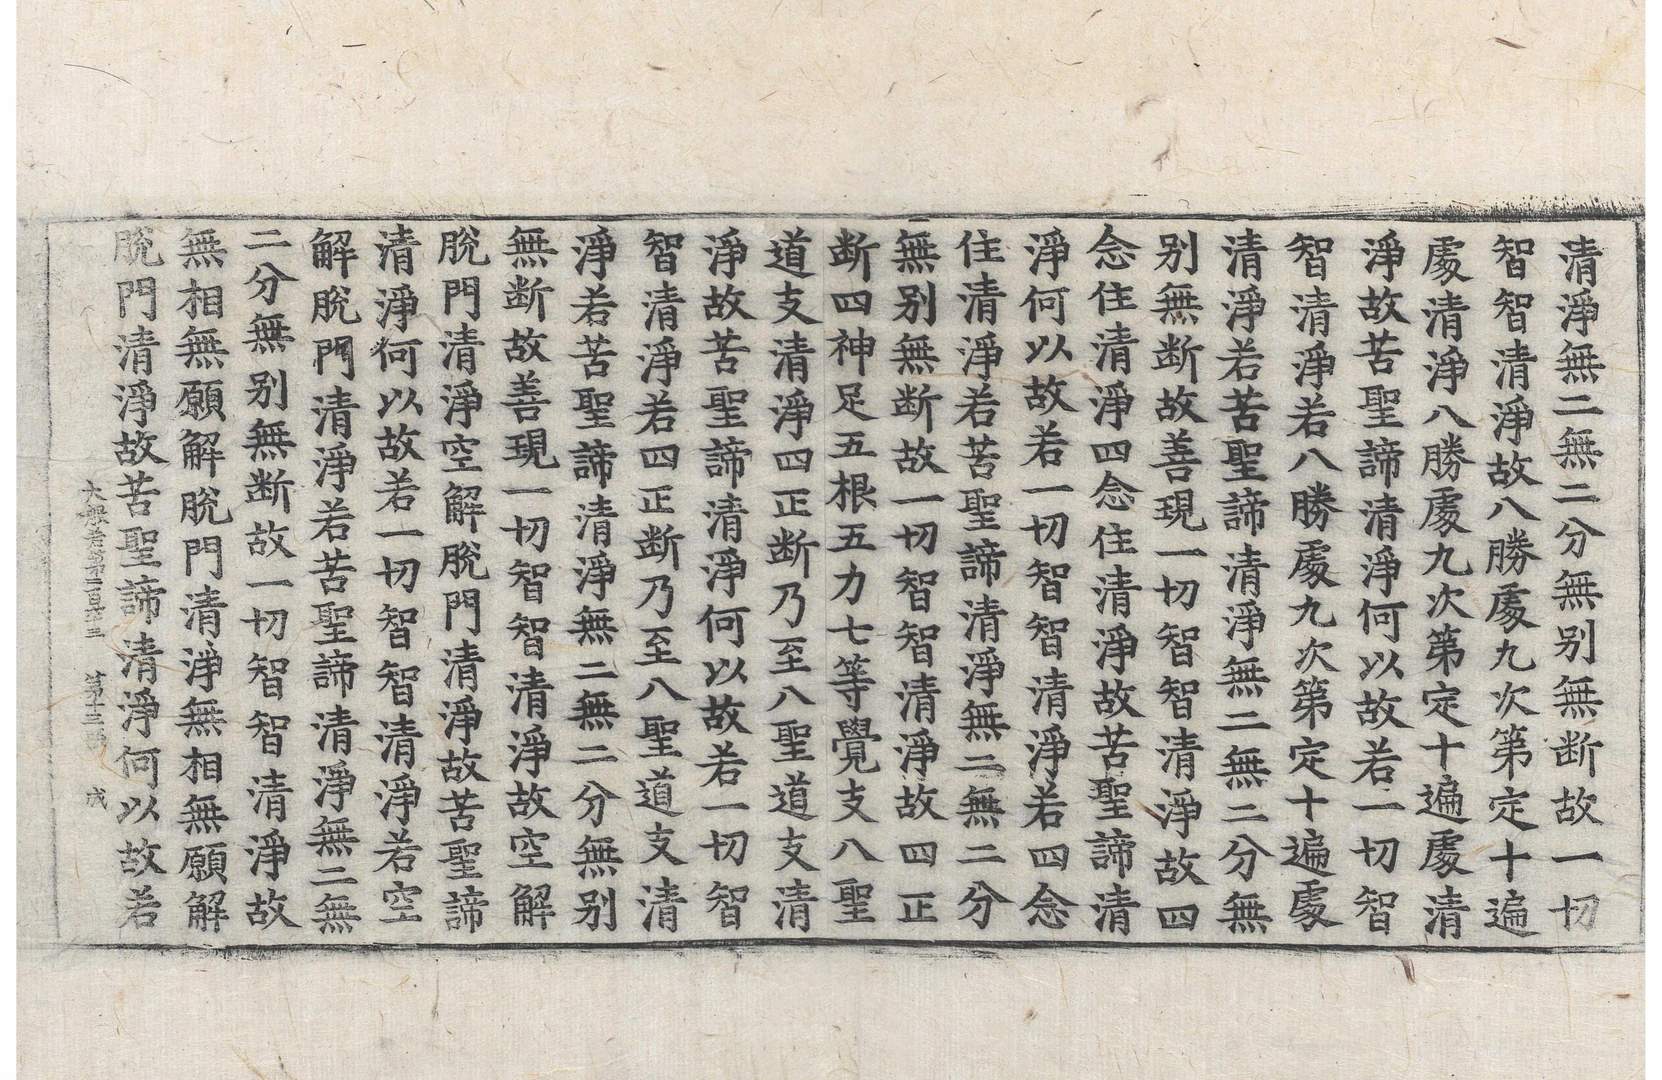 清淨無二無二分無别無断故一切
智智清淨故八勝處九次第定十遍
處清淨八勝處九次第定十遍處清
淨故苦聖諦清淨何以故若一切智
智清淨若八勝處九次第定十遍處
清淨若苦聖諦清淨無二無二分無
别無断故善現一切智智清淨故四
念住清淨四念住清淨故苦聖諦清
淨何以故若一切智智清淨若四念
住清淨若苦聖諦清淨無二無二分
無别無断故一切智智清淨故四正
断四神足五根五力七等覺支八聖
道支清淨四正断乃至八聖道支清
淨故苦聖諦清淨何以故若一切智
智清淨若四正断乃至八聖道支清
淨若苦聖諦清淨無二無二分無别
無断故善現一切智智清淨故空解
脫門清淨空解脫門清淨故苦聖諦
清淨何以故若一切智智清淨若空
解脫門清淨若苦聖諦清淨無二無
二分無别無断故一切智智清淨故
無相無願解脫門清淨無相無願解
脫門清淨故苦聖諦清淨何以故若
大般若第二百三 第十三張